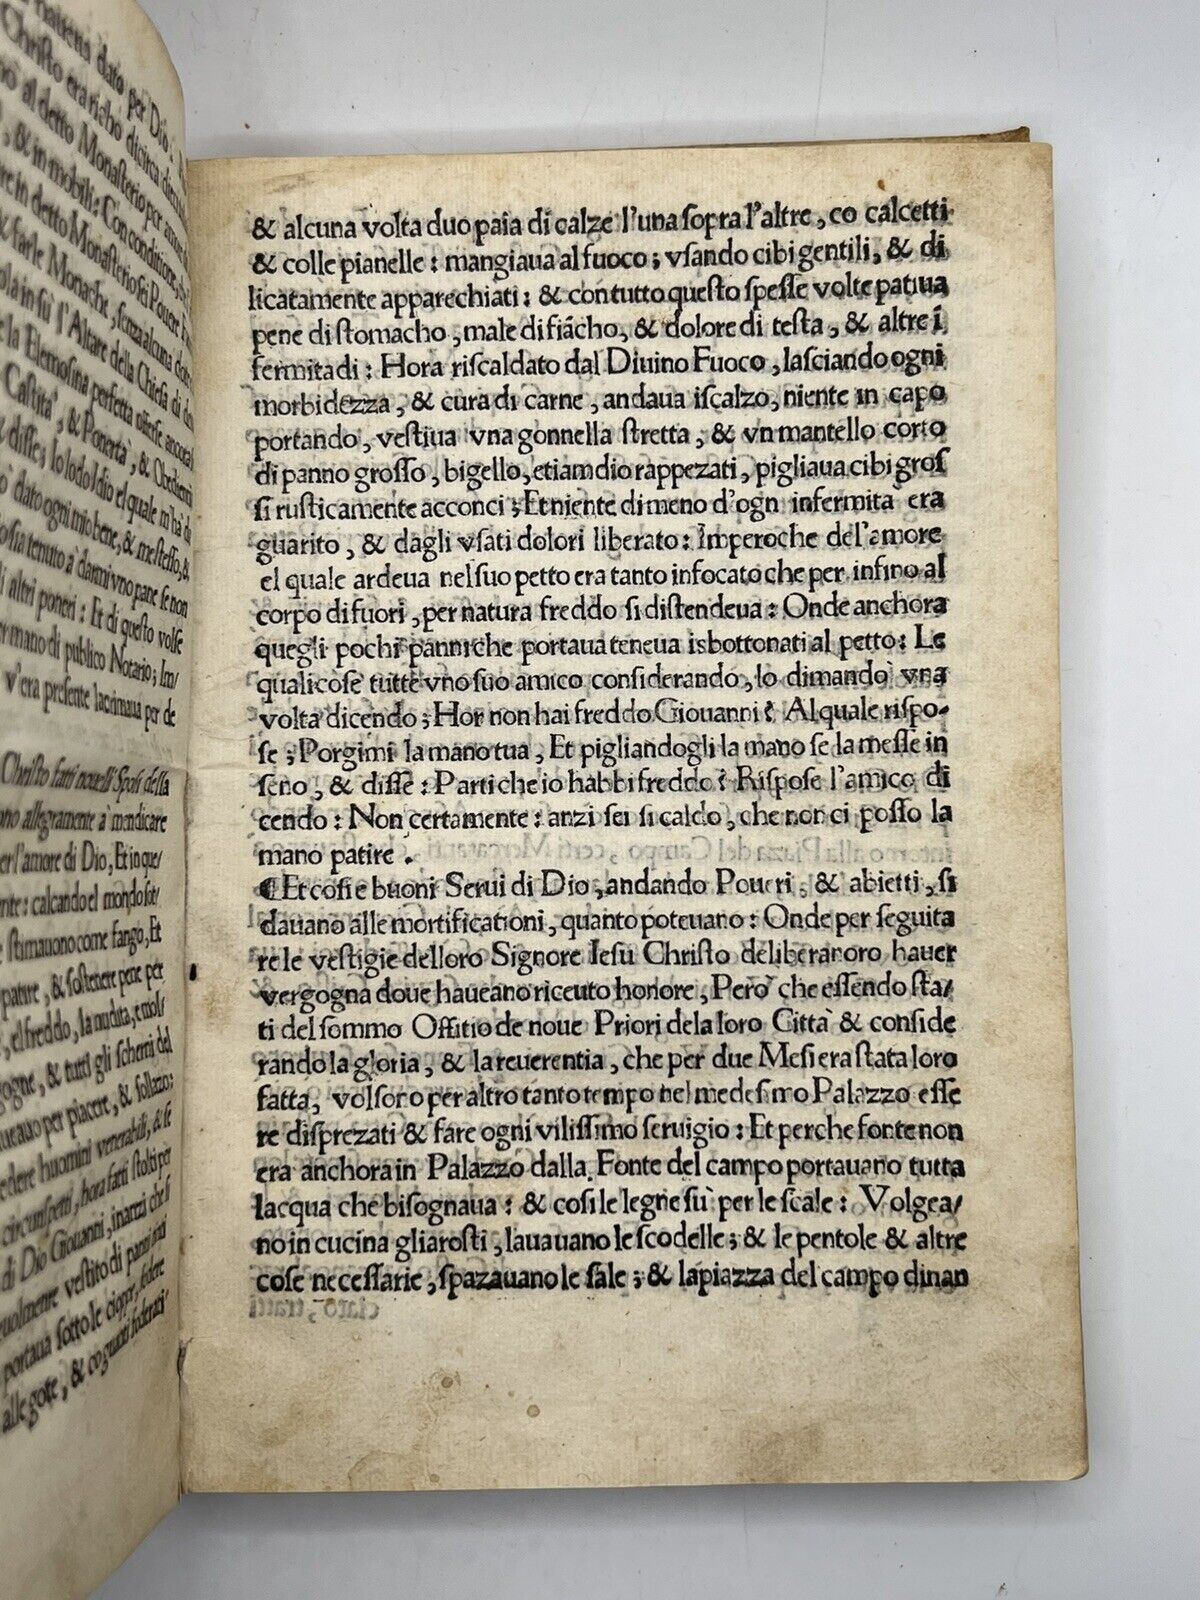 hauena dato per Dio:
Christo era riabo di circa
al detto Monasterio per
, & in mobili: Con conditione, che
re in detto Monasterio sei Pouere
& farle Monache, senza alcuna dota
ola in sù l'Altare della Chiesa di
la Elemosina perfetta offerse ancora
Castità, & Pouertà, & Obedientia
& disse; Io lodo Idio el quale m'ha di
dato ogni mio bene, & me stesso, &
sia tenuto à darmi vno pane se non
altri poueri: Et di questo volse
er mano di publico Notario; Im/
v'era presente lacrimaua per de
Christo fatti nouelli Sposi della
ano allegramente à mendicare
er l'amore di Dio, Et in que/
nte: calcando el mondo sot/
e stimauono come fango, Et
patire, & sostenere pene per
, el freddo, la nudita, e mol/
gogne, & tutti gli scherni del
ueano per piacere, & sollazo:
edere huomini venerabili, & se
circunspetti, hora fatti stolti per
di Dio Giouanni, inanzi che si
uolmente vestito di panni
portaua sotto le cioppe, fodere
alle gote, & co guanti foderati
& alcuna volta duo paia di calze l'una sopra l'altre, co calcetti
& colle pianelle: mangiaua al fuoco; vsando cibi gentili, & di
licatamente apparechiati: & con tutto questo spesse volte patiua
pene di stomacho, male di fiãcho, & dolore di testa, & altre ĩ
fermitadi: Hora riscaldato dal Diuino Fuoco, lasciando ogni
morbidezza, & cura di carne, andaua iscalzo, niente in capo
portando, vestiua vna gonnella stretta, & vn mantello corto
di panno grosso, bigello, etiamdio rappezati, pigliaua cibi gros
si rusticamente acconci; Et niente di meno d'ogn infermita era
guarito, & dagli vsati dolori liberato: Imperoche del'amore
el quale ardeua nel suo petto era tanto infocato che per infino al
corpo di fuori, per natura freddo si distendeua: Onde anchora
quegli pochi panni che portaua teneua isbottonati al petto: Le
quali cose tutte vno suo amico considerando, lo dimandò vna
volta dicendo; Hor non hai freddo Giouanni? Al quale rispo-
se; Porgimi la mano tua, Et pigliandogli la mano se la messe in
seno, & disse: Parti che io habbi freddo? Rispose l'amico di
cendo: Non certamente: anzi sei si caldo, che non ci posso la
mano patire.
¶ Et cosi e buoni Serui di Dio, andando Poueri, & abietti, si
dauano alle mortificationi, quanto poteuano: Onde per seguita
re le vestigie dello ro Signore Iesu Christo deliberanoro hauer
vergogna doue haueano riceuto honore, Però che essendo sta/
ti del sommo Offitio de noue Priori dela loro Città & conside
rando la gloria, & la reuerentia, che per due Mesi era stata loro
fatta, volsono per altro tanto tempo nel medesimo Palazzo esse
re disprezati & fare ogni vilissimo seruigio: Et perche fonte non
era anchora in Palazzo dalla. Fonte del campo portauano tutta
lacqua che bisognaua: & cosi le legne sù per le scale: Volgea/
no in cucina gli arosti, lauauano le scodelle; & le pentole & altre
cose necessarie, spazauano le sale; & la piazza del campo dinan